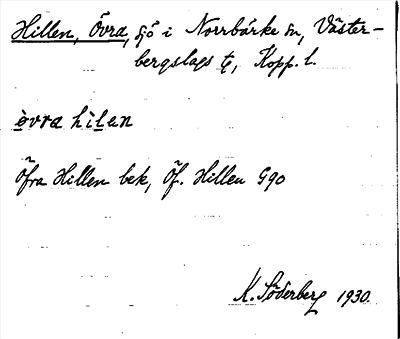 Hillen, Övra, sjö i Norrbärke sn, Väster-
bergslags tg, Kopp. l.
òvra hìlen
Öfra Hillen bek, Öf. Hillen G90
K. Söderberg 1930.